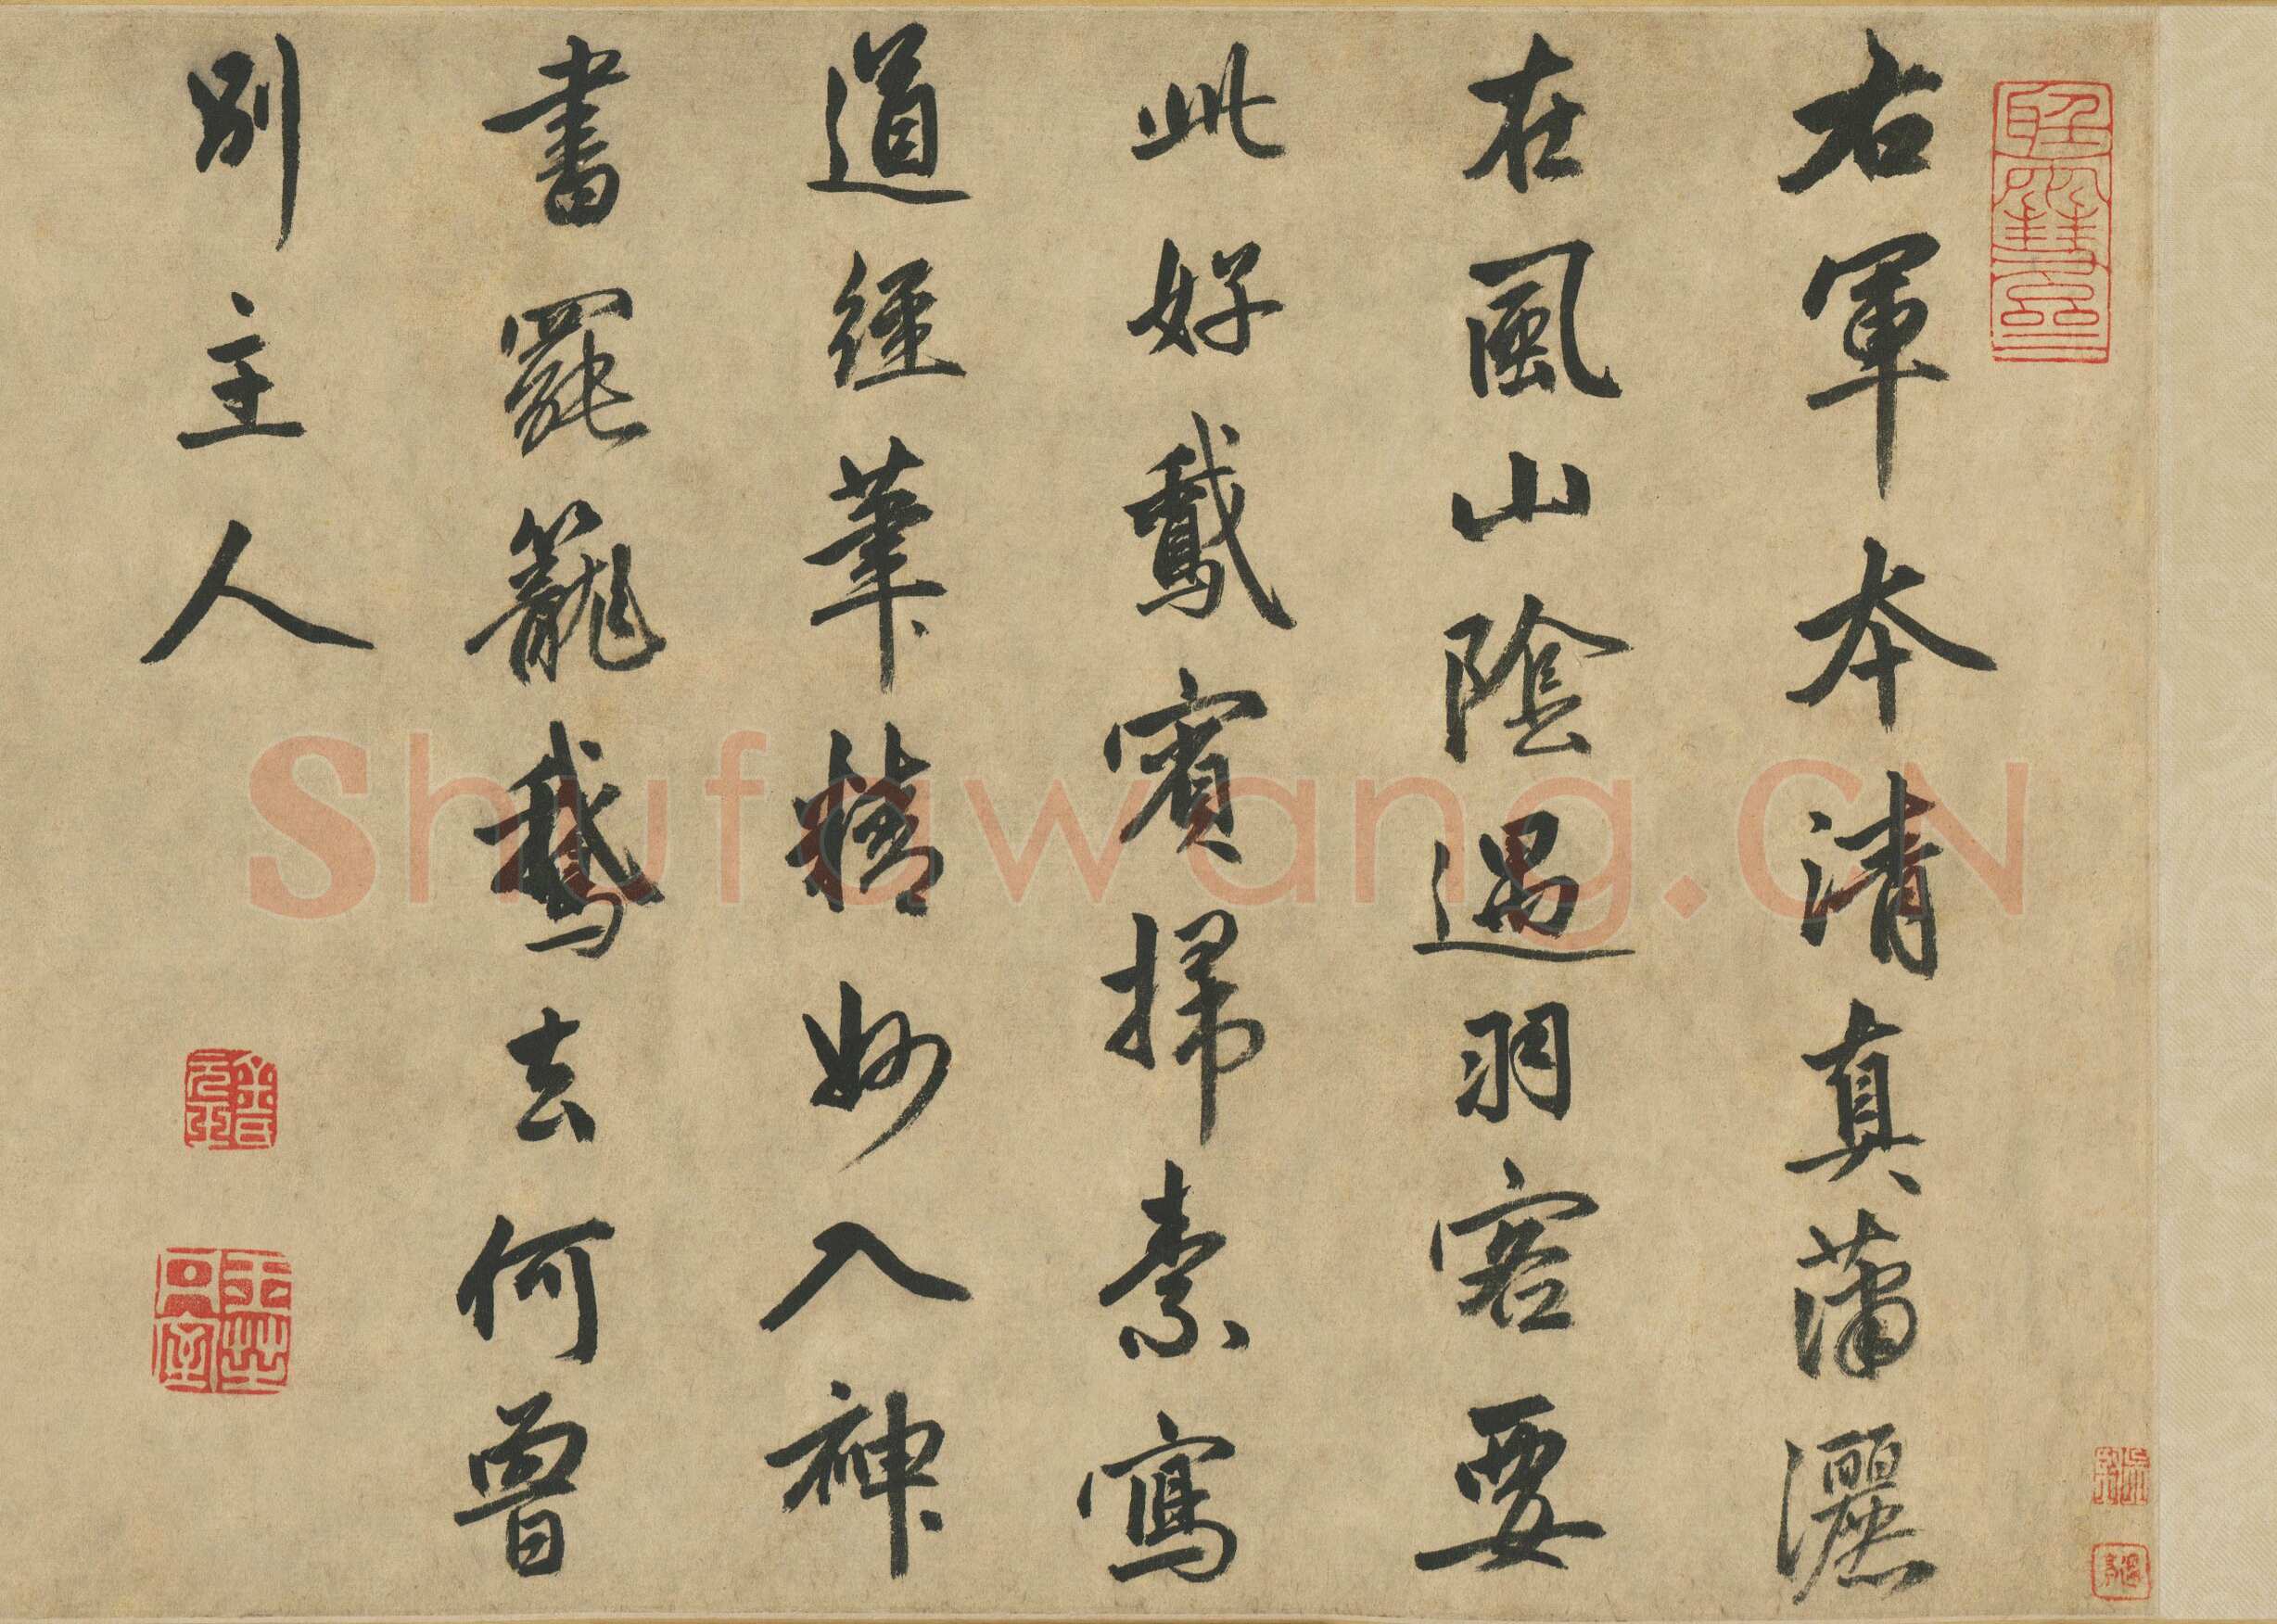 右軍本清真蕭灑
在風山陰遇羽客要
此好鵞賓掃素寫
道經筆精妙入神
書罷籠鵞去何曾
別主人
Shufawang.CN